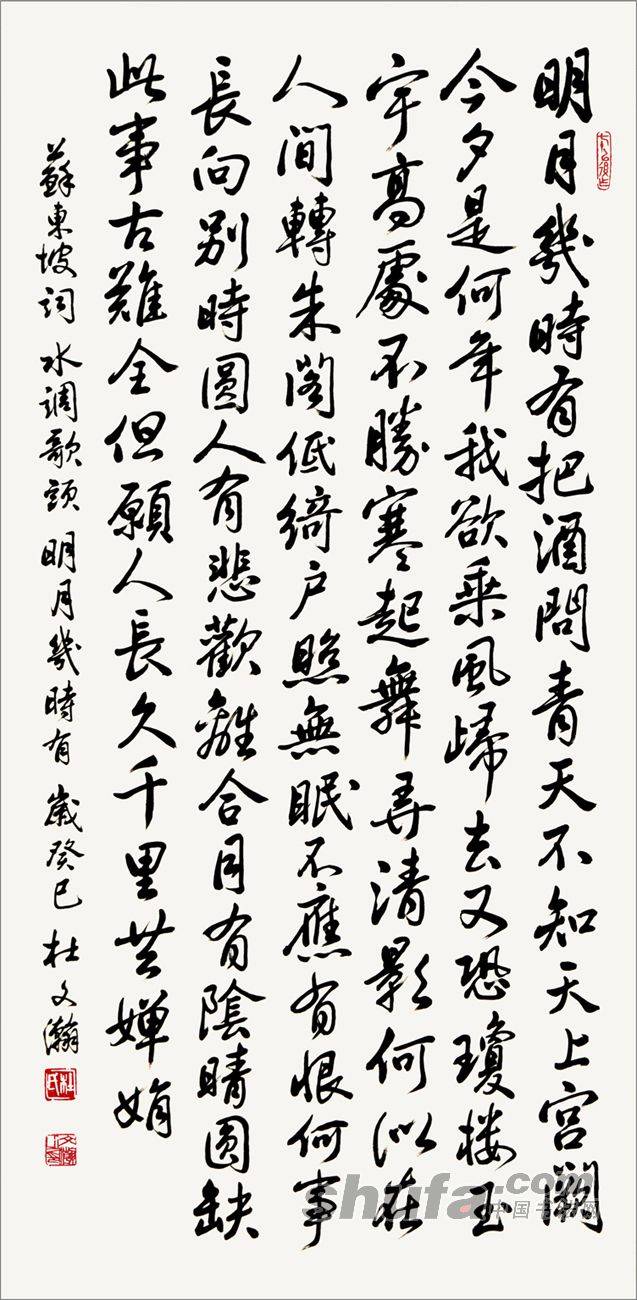 明月幾時有把酒問青天不知天上宮闕
今夕是何年我欲乘風歸去又恐瓊楼玉
宇高處不勝寒起舞弄清影何似在
人间轉朱阁低綺户照無眠不應有恨何事
長向别時圓人有悲歡離合月有陰晴圆缺
此事古難全但願人長久千里共嬋娟
蘇東坡词 水调歌頭 明月幾時有 歲癸巳 杜文瀚
杜氏
shufa.com
中国书法网